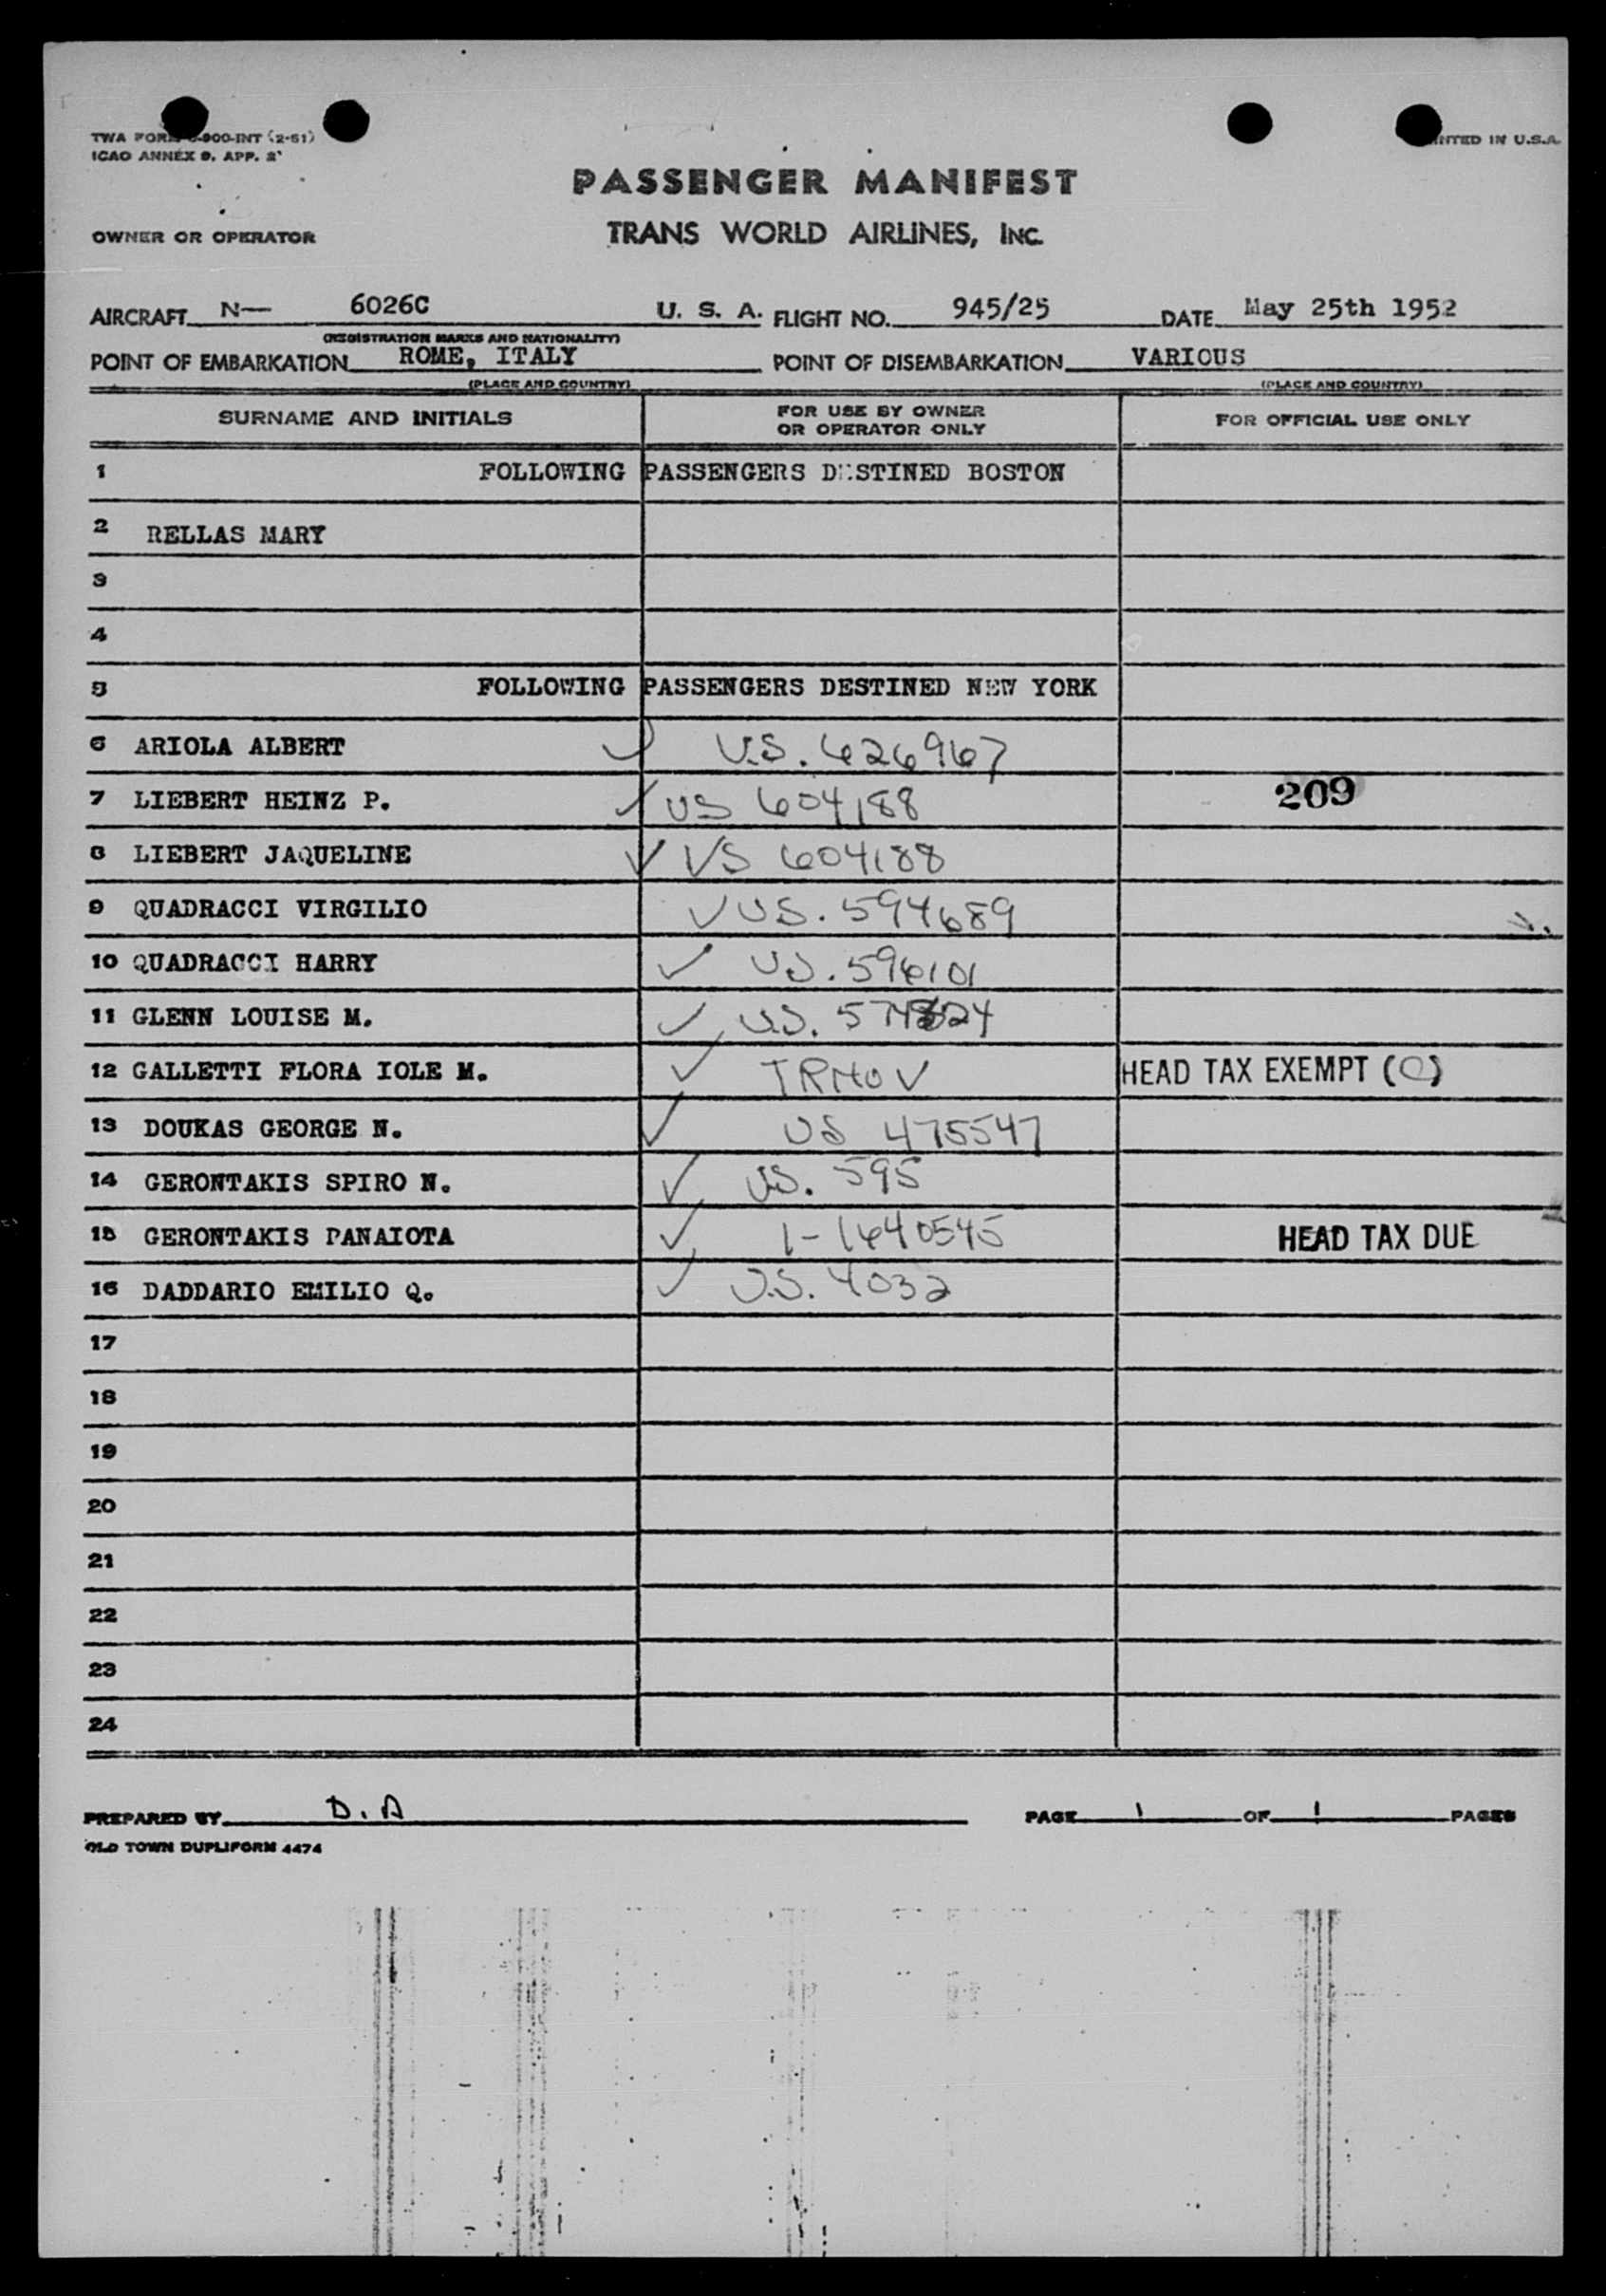 TWA FORM -900-INT (2-51)
ICAO ANNEX 9, APP. 2
PRINTED IN U.S.A.
PASSENGER MANIFEST
OWNER OR OPERATOR
TRANS WORLD AIRLINES, INC.
AIRCRAFT N— 6026C U. S. A. FLIGHT NO. 945/25 DATE May 25th 1952
(REGISTRATION MARKS AND NATIONALITY)
POINT OF EMBARKATION ROME, ITALY POINT OF DISEMBARKATION VARIOUS
(PLACE AND COUNTRY) (PLACE AND COUNTRY)
SURNAME AND INITIALS FOR USE BY OWNER OR OPERATOR ONLY FOR OFFICIAL USE ONLY
1 FOLLOWING PASSENGERS DESTINED BOSTON
2 RELLAS MARY
3
4
5 FOLLOWING PASSENGERS DESTINED NEW YORK
6 ARIOLA ALBERT ✓ U.S. 626967
7 LIEBERT HEINZ P. ✓ US 604188 209
8 LIEBERT JAQUELINE ✓ US 604188
9 QUADRACCI VIRGILIO ✓ US. 594689
10 QUADRACCI HARRY ✓ US. 596101
11 GLENN LOUISE M. ✓ U.S.
12 GALLETTI FLORA IOLE M. ✓ HEAD TAX EXEMPT (C)
13 DOUKAS GEORGE N. ✓ US 475547
14 GERONTAKIS SPIRO N. ✓ US. 595
15 GERONTAKIS PANAIOTA ✓ 1-1640545 HEAD TAX DUE
16 DADDARIO EMILIO Q. ✓ U.S. 4032
17
18
19
20
21
22
23
24
PREPARED BY D. A PAGE 1 OF 1 PAGES
OLD TOWN DUPLIFORM 4474